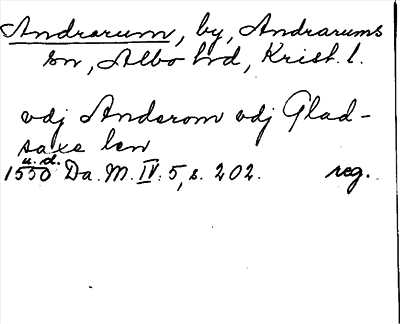 Andrarum, by, Andrarums
sn, Albo hd, Krist. l.
vdj Anderom vdj Glad-
saxe len
u. d.
1550 Da. M. IV. 5, s. 202. reg.